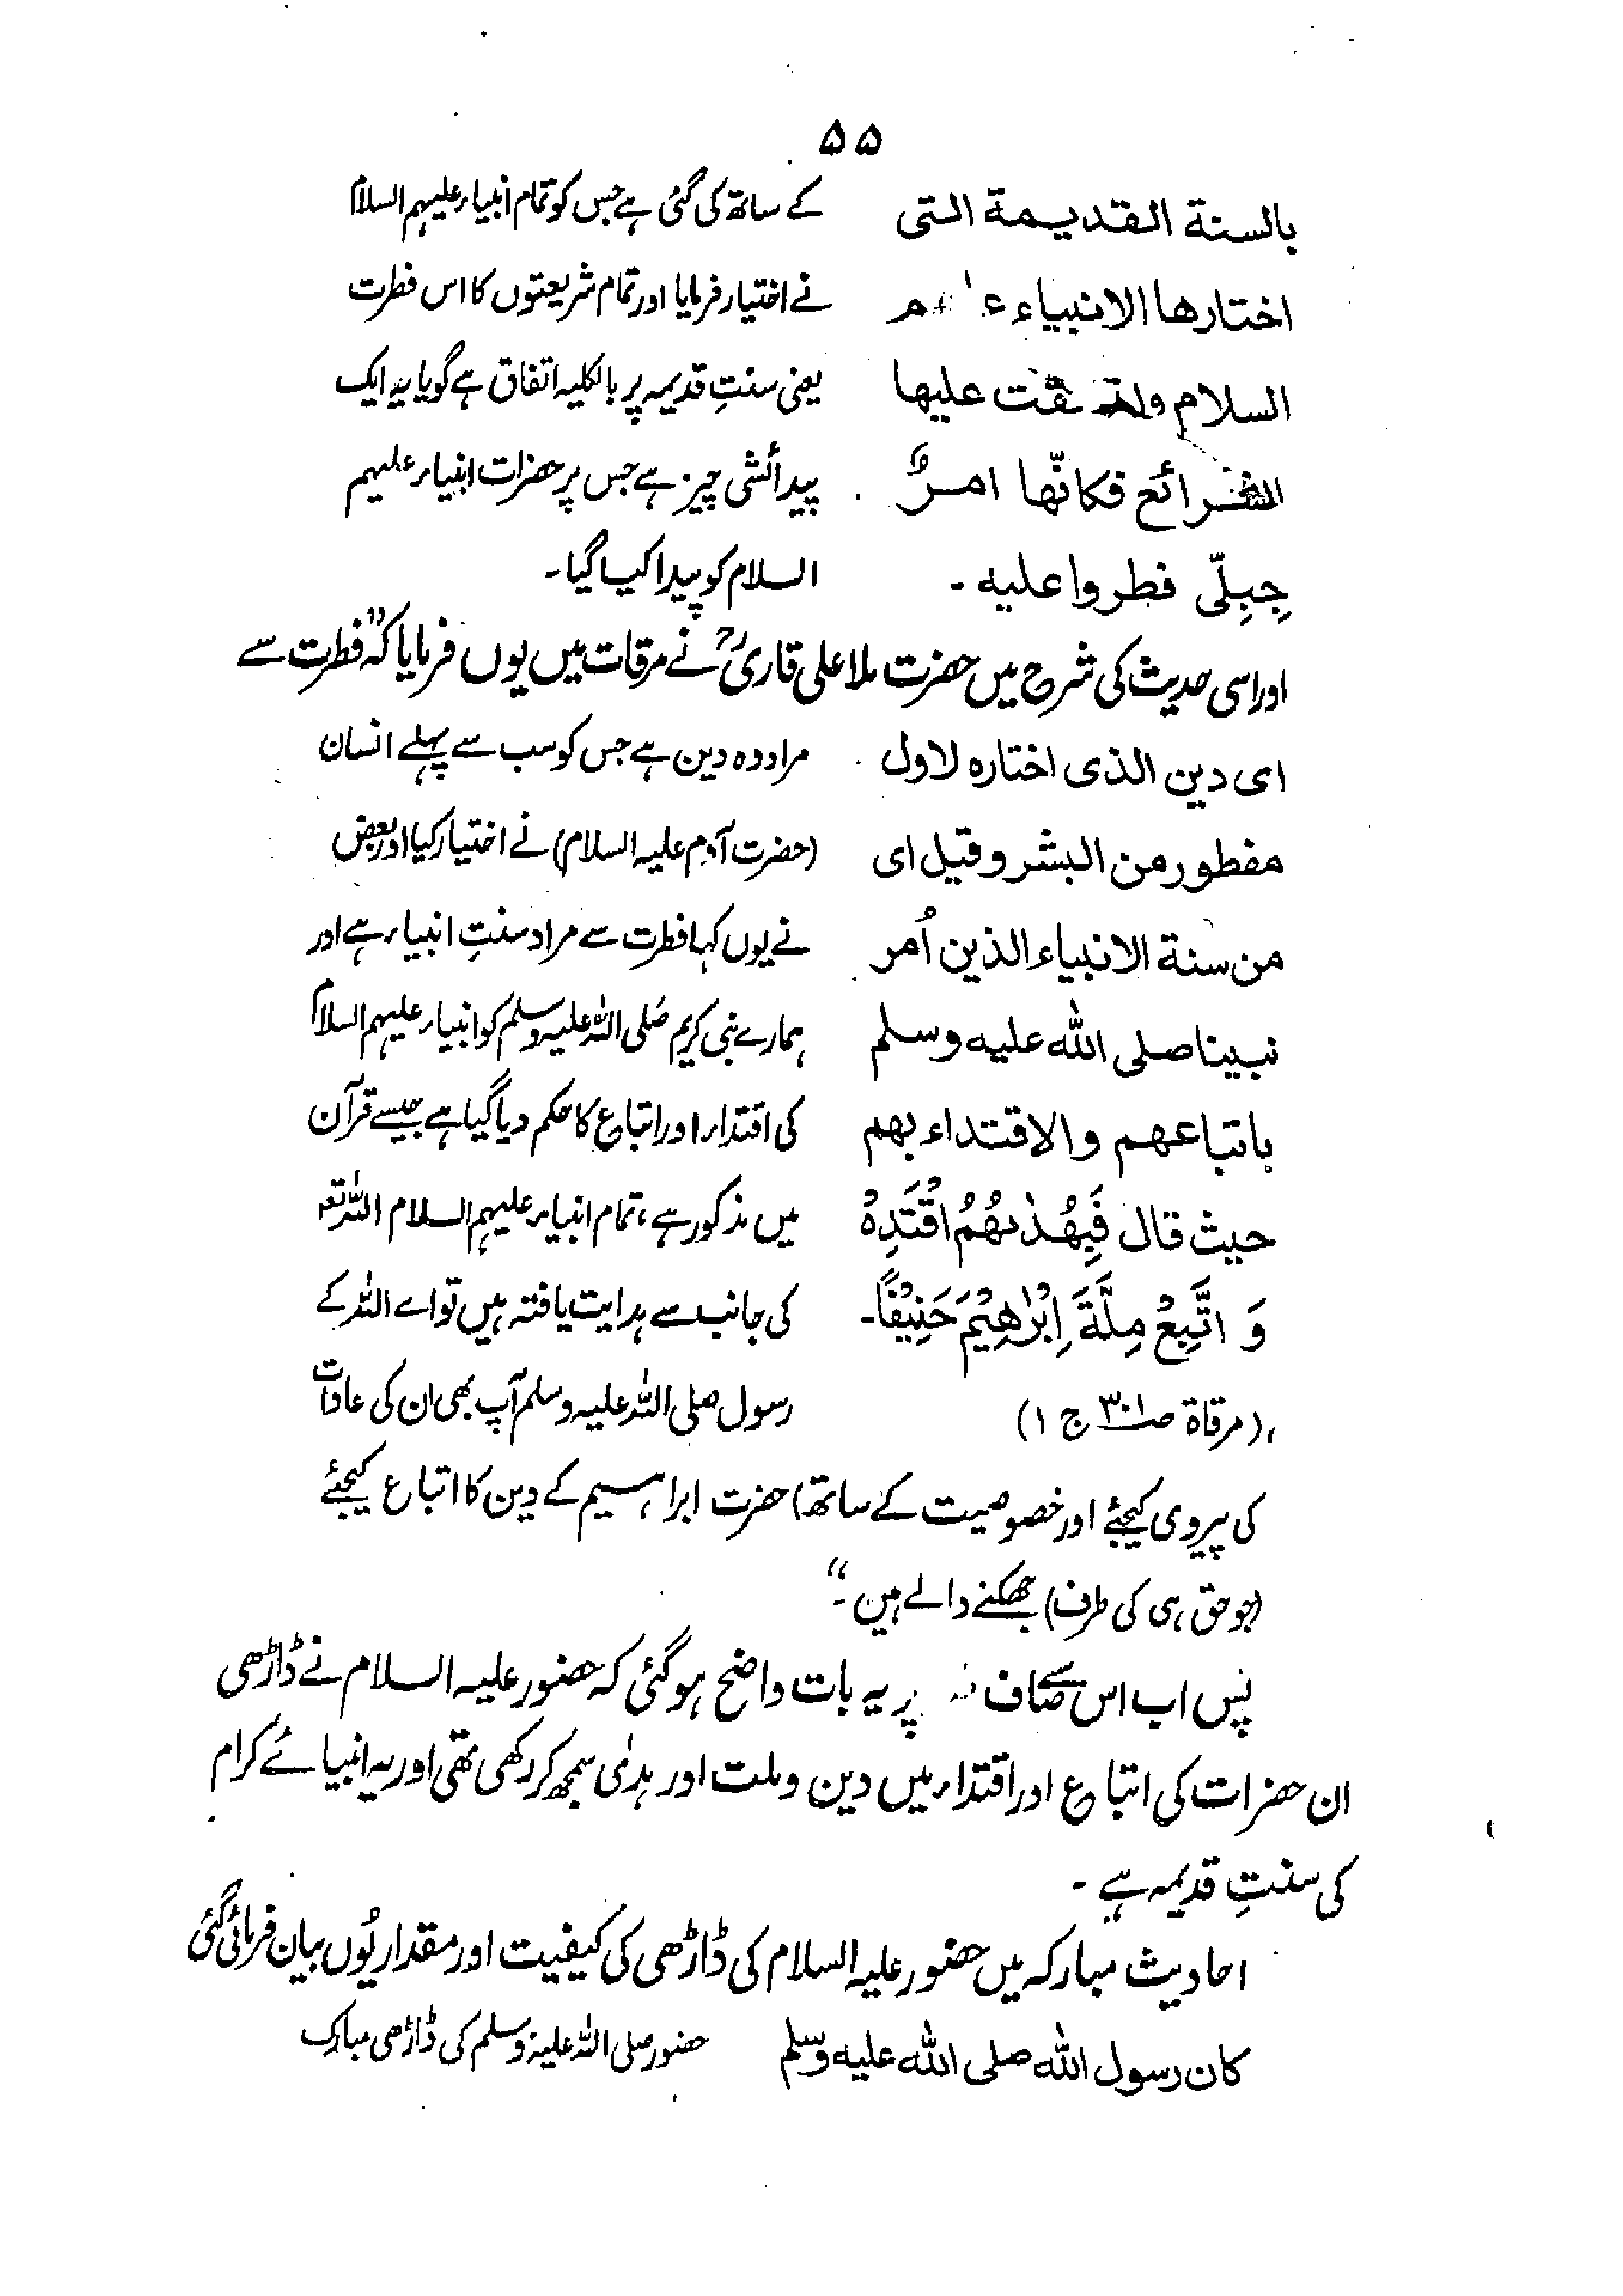 ۵۵
بالسنة القديمة التى
اختارها الانبياء
السلام عليها
فكانّها امرٌ
جِبِلّى فطروا عليه ۔
کے ساتھ کی گئی ہے جس کو تمام انبیاء علیہم السلام
نے اختیار فرمایا اور تمام شریعتوں کا اس فطرت
یعنی سنتِ قدیمہ پر بالکلیہ اتفاق ہے گویا یہ ایک
پیدائشی چیز ہے جس پر حضرات انبیاء علیہم
السلام کو پیدا کیا گیا۔
اور اسی حدیث کی شرح میں حضرت ملا علی قاریؒ نے مرقات میں یوں فرمایا کہ "فطرت سے
اى دين الذى اختاره لاول
مفطور من البشر وقيل اى
من سنة الانبياء الذين اُمر
نبينا صلى الله عليه وسلم
باتباعهم والاقتداء بهم
حيث قال فَبِهُدٰىهُمُ اقْتَدِهْ
وَ اتَّبِعْ مِلَّةَ اِبْرٰهِيْمَ حَنِيْفًا۔
(مرقاة صـ۳۰۱ ج ۱)
مراد وہ دین ہے جس کو سب سے پہلے انسان
(حضرت آدم علیہ السلام) نے اختیار کیا اور بعض
نے یوں کہا فطرت سے مراد سنتِ انبیاء ہے اور
ہمارے نبی کریم صلی اللہ علیہ وسلم کو انبیاء علیہم السلام
کی اقتداء اور اتباع کا حکم دیا گیا ہے جیسے قرآن
میں مذکور ہے، تمام انبیاء علیہم السلام اللہ تعہ
کی جانب سے ہدایت یافتہ ہیں تو اے اللہ کے
رسول صلی اللہ علیہ وسلم آپ بھی ان کی عادات
کی پیروی کیجئے اور خصوصیت کے ساتھ) حضرت ابراہیم کے دین کا اتباع کیجئے
(جو حق ہی کی طرف) جھکنے والے ہیں ۔"
پس اب اس صاف پر یہ بات واضح ہو گئی کہ حضور علیہ السلام نے ڈاڑھی
ان حضرات کی اتباع اور اقتداء میں دین و ملت اور ہدٰی سمجھ کر رکھی تھی اور یہ انبیائے کرام
کی سنتِ قدیمہ ہے ۔
احادیث مبارکہ میں حضور علیہ السلام کی ڈاڑھی کی کیفیت اور مقدار یُوں بیان فرمائی گئی
كان رسول الله صلى الله عليه وسلم
حضور صلی اللہ علیہ وسلم کی ڈاڑھی مبارک